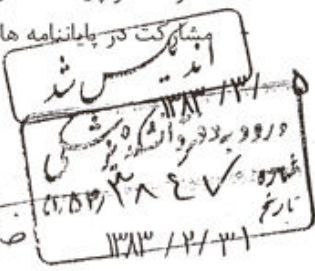 مشارکت در پایاننامه ها
اندیس شد
۱۳۸۳/۳/۵
ورود به دفتر دانشکده پزشکی
شماره ۳۸۴۷
تاریخ
۱۳۸۳/۲/۳۱